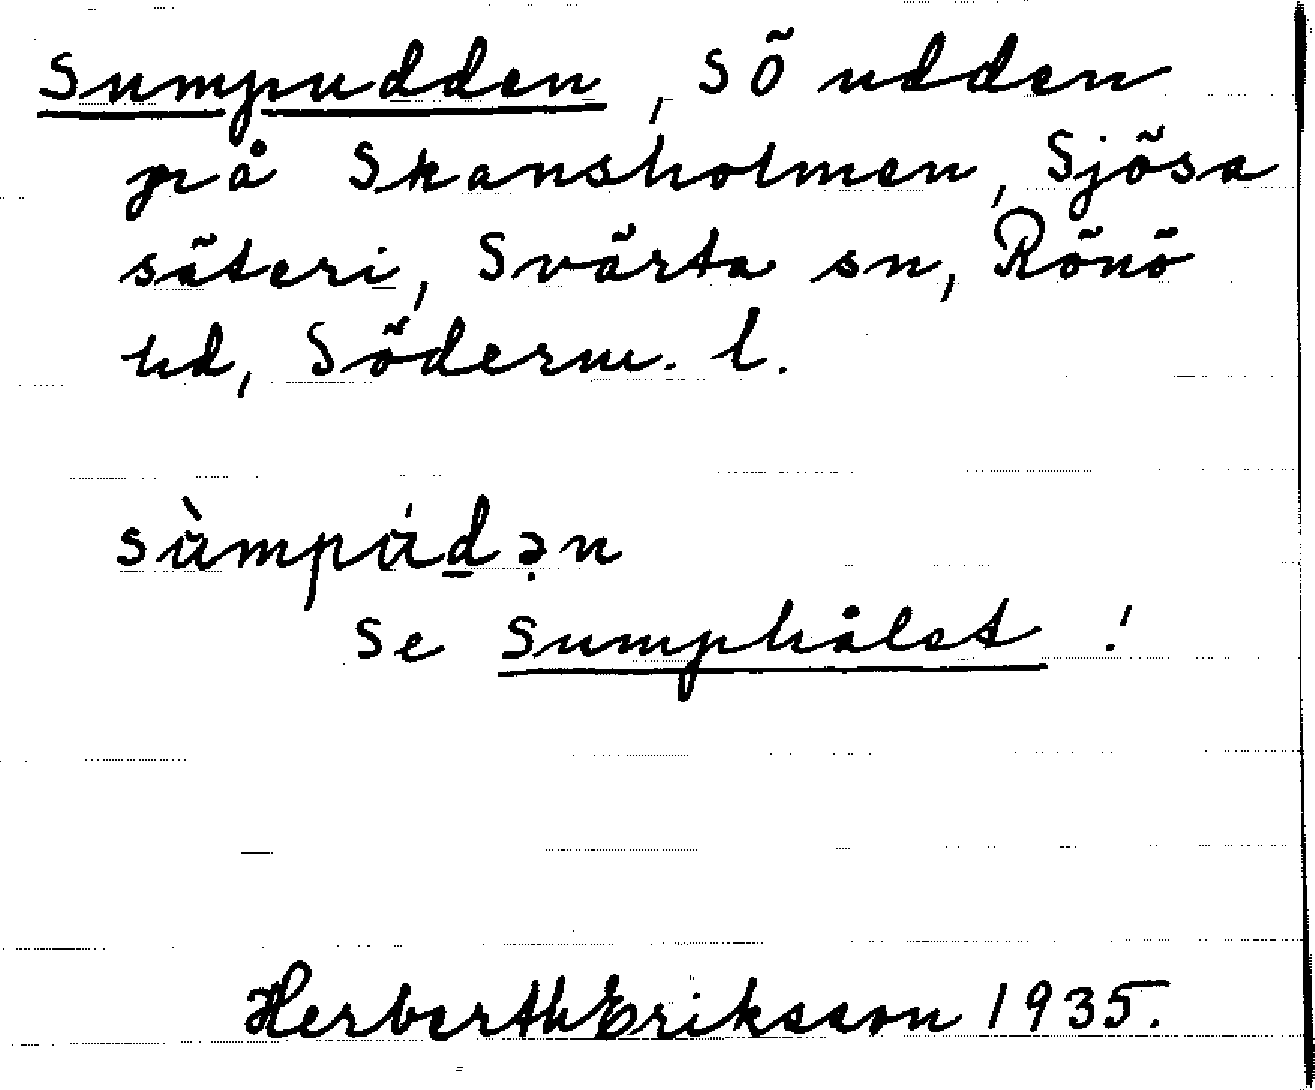 Sumpudden, SÖ udden
på Skansholmen, Sjösa
säteri, Svärta sn, Rönö
hd, Söderm. l.
sùmpúdən
Se Sumphålet!
Herberth Eriksson 1935.